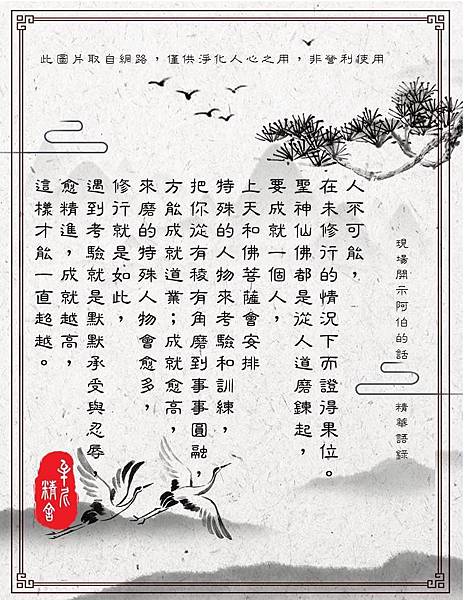 此圖片取自網路，僅供淨化人心之用，非營利使用
現場開示阿伯的話　精華語錄
人不可能，
在未修行的情況下而證得果位。
聖神仙佛都是從人道磨鍊起，
要成就一個人，
上天和佛菩薩會安排
特殊的人物來考驗和訓練，
把你從有稜有角磨到事事圓融，
方能成就道業；成就愈高，
來磨的特殊人物會愈多，
修行就是如此，
遇到考驗就是默默承受與忍辱，
愈精進，成就越高，
這樣才能一直超越。
精舍